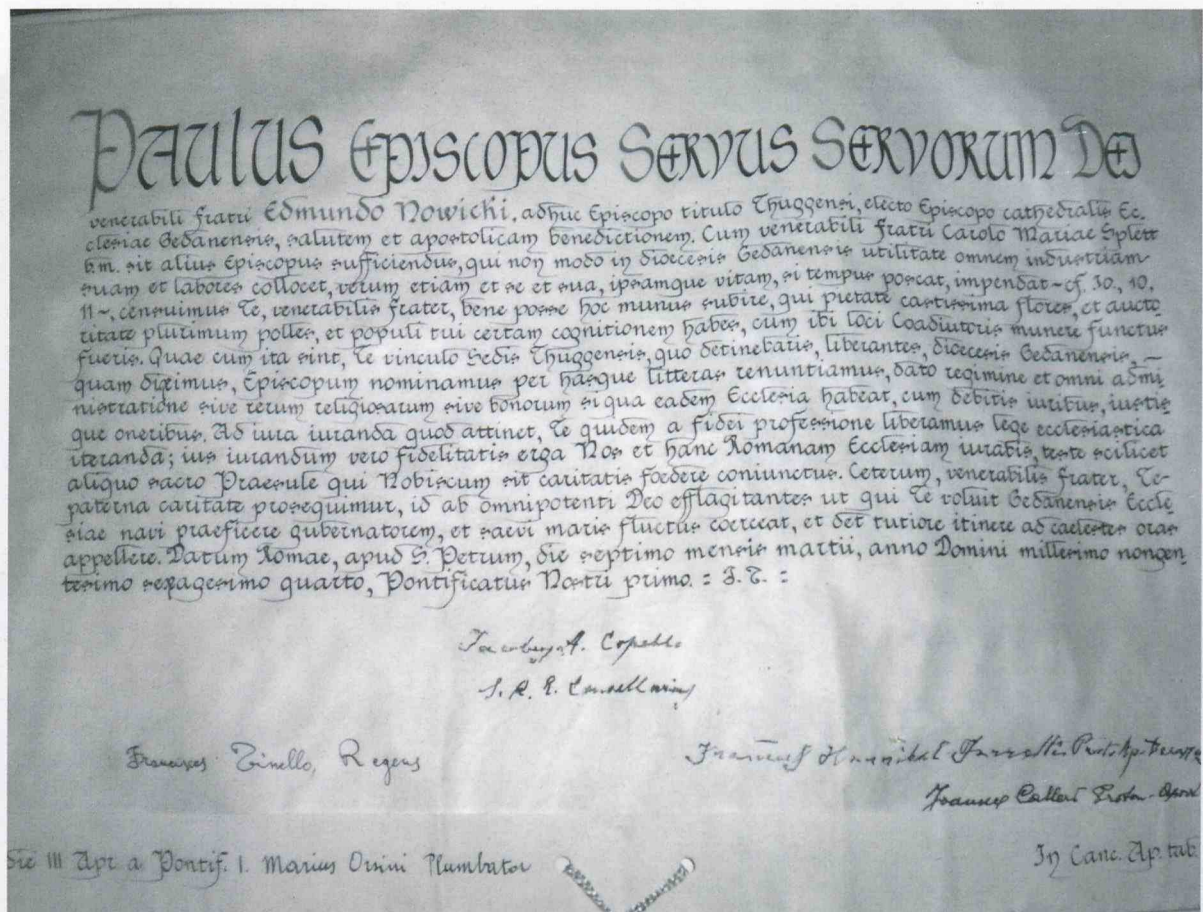 PAULUS EPISCOPUS SERVUS SERVORUM DEI
venerabili fratri Edmundo Nowicki, adhuc Episcopo titulo Thuggensi, electo Episcopo cathedralis Ec-
clesiae Gedanensis, salutem et apostolicam benedictionem. Cum venerabili fratri Carolo Mariae Splett
b.m. sit alius Episcopus sufficiendus, qui non modo in dioecesis Gedanensis utilitate omnem industriam
suam et labores collocet, verum etiam et se et sua, ipsamque vitam, si tempus poscat, impendat ~ cf. Jo., 10,
11 ~, censuimus Te, venerabilis frater, bene posse hoc munus subire, qui pietate castissima flores, et aucto
ritate plurimum polles, et populi tui certam cognitionem habes, cum ibi loci Coadiutoris munere functus
fueris. Quae cum ita sint, Te vinculo Sedis Thuggensis, quo detinebaris, liberantes, dioecesis Gedanensis, ~
quam diximus, Episcopum nominamus per hasque litteras renuntiamus, dato regimine et omni admi
nistratione sive rerum religiosarum sive bonorum si qua eadem Ecclesia habeat, cum debitis iuribus, iustis
que oneribus. Ad iura iuranda quod attinet, Te quidem a fidei professione liberamus lege ecclesiastica
iteranda; ius iurandum vero fidelitatis erga Nos et hanc Romanam Ecclesiam iurabis, teste scilicet
aliquo sacro Praesule qui Nobiscum sit caritatis foedere coniunctus. Ceterum, venerabilis frater, Te-
paterna caritate prosequimur, id ab omnipotenti Deo efflagitantes ut qui Te voluit Gedanensis Eccle
siae navi praeficere gubernatorem, et saevi maris fluctus coerceat, et det tutiore itinere ad caelestes oras
appellere. Datum Romae, apud S. Petrum, die septimo mensis martii, anno Domini millesimo nongen
tesimo sexagesimo quarto, Pontificatus Nostri primo. = J. T. =
Jacobus A. Copello
S. R. E. Cancellarius
Franciscus Tinello, Regens
Franciscus Hannibal Ferretti Prot. Ap.
Joannes Calleri Proton. Apost
Die III Apr. a Pontif. I. Marius Orsini Plumbator
In Canc. Ap. tab.